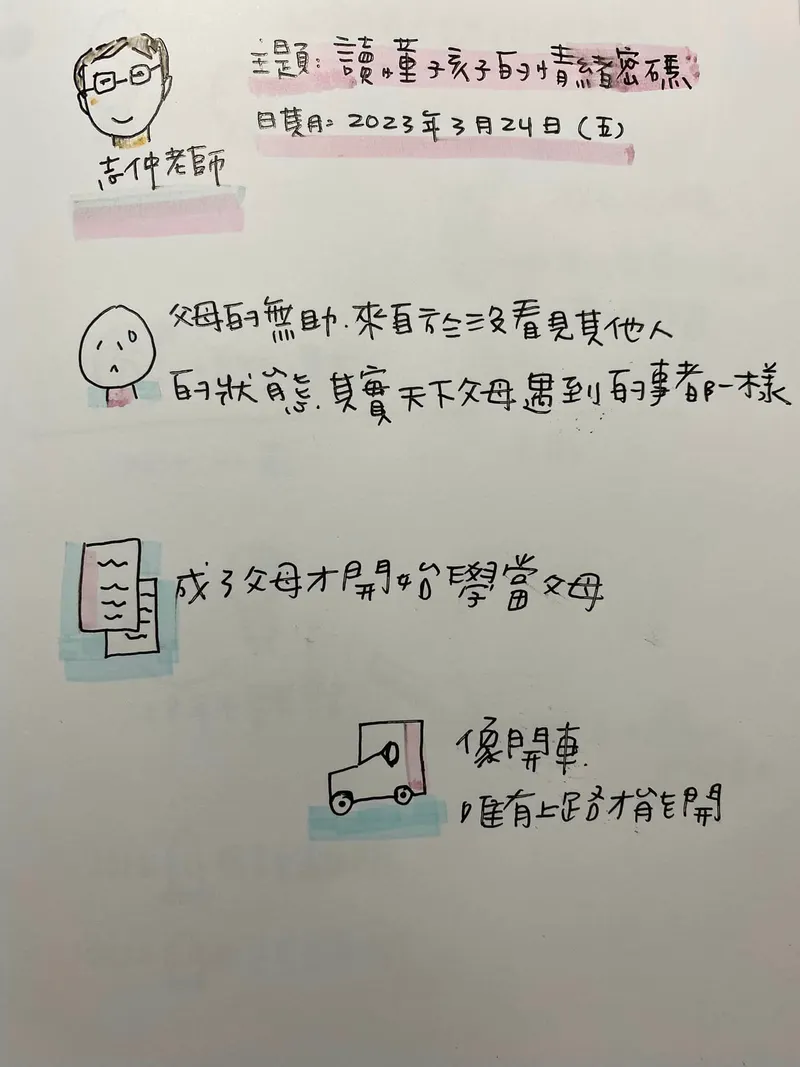 主題：讀懂孩子的情緒密碼
日期：2023年3月24日（五）
志仲老師
父母的無助.來自於沒看見其他人
的狀態.其實天下父母遇到的事都一樣
成了父母才開始學當父母
像開車.
唯有上路才能開